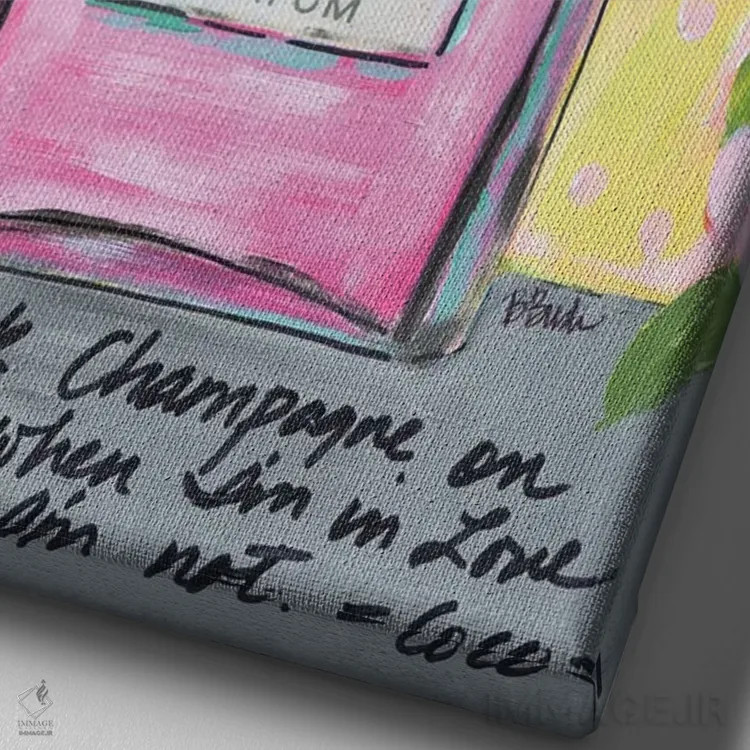 FUM
bBush
Champagne on
when im in Love
am not. = Coco
IMMAGE
IMMAGE.IR
IMMAGE.IR